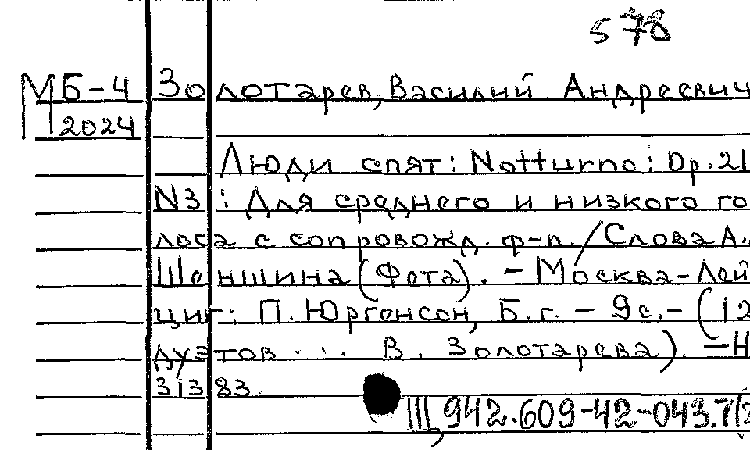 578
МБ-4 Золотарев, Василий Андреевич
2024
Люди спят: Notturno: Op.21
N3 : Для среднего и низкого го
лоса с сопровожд. ф-п. / Слова А.
Шеншина (Фета). - Москва-Лей
циг: П. Юргенсон, Б.г. - 9с. - (12
дуэтов . . . В. Золотарева). - Н
31383
III, 942.609-42-043.7(2